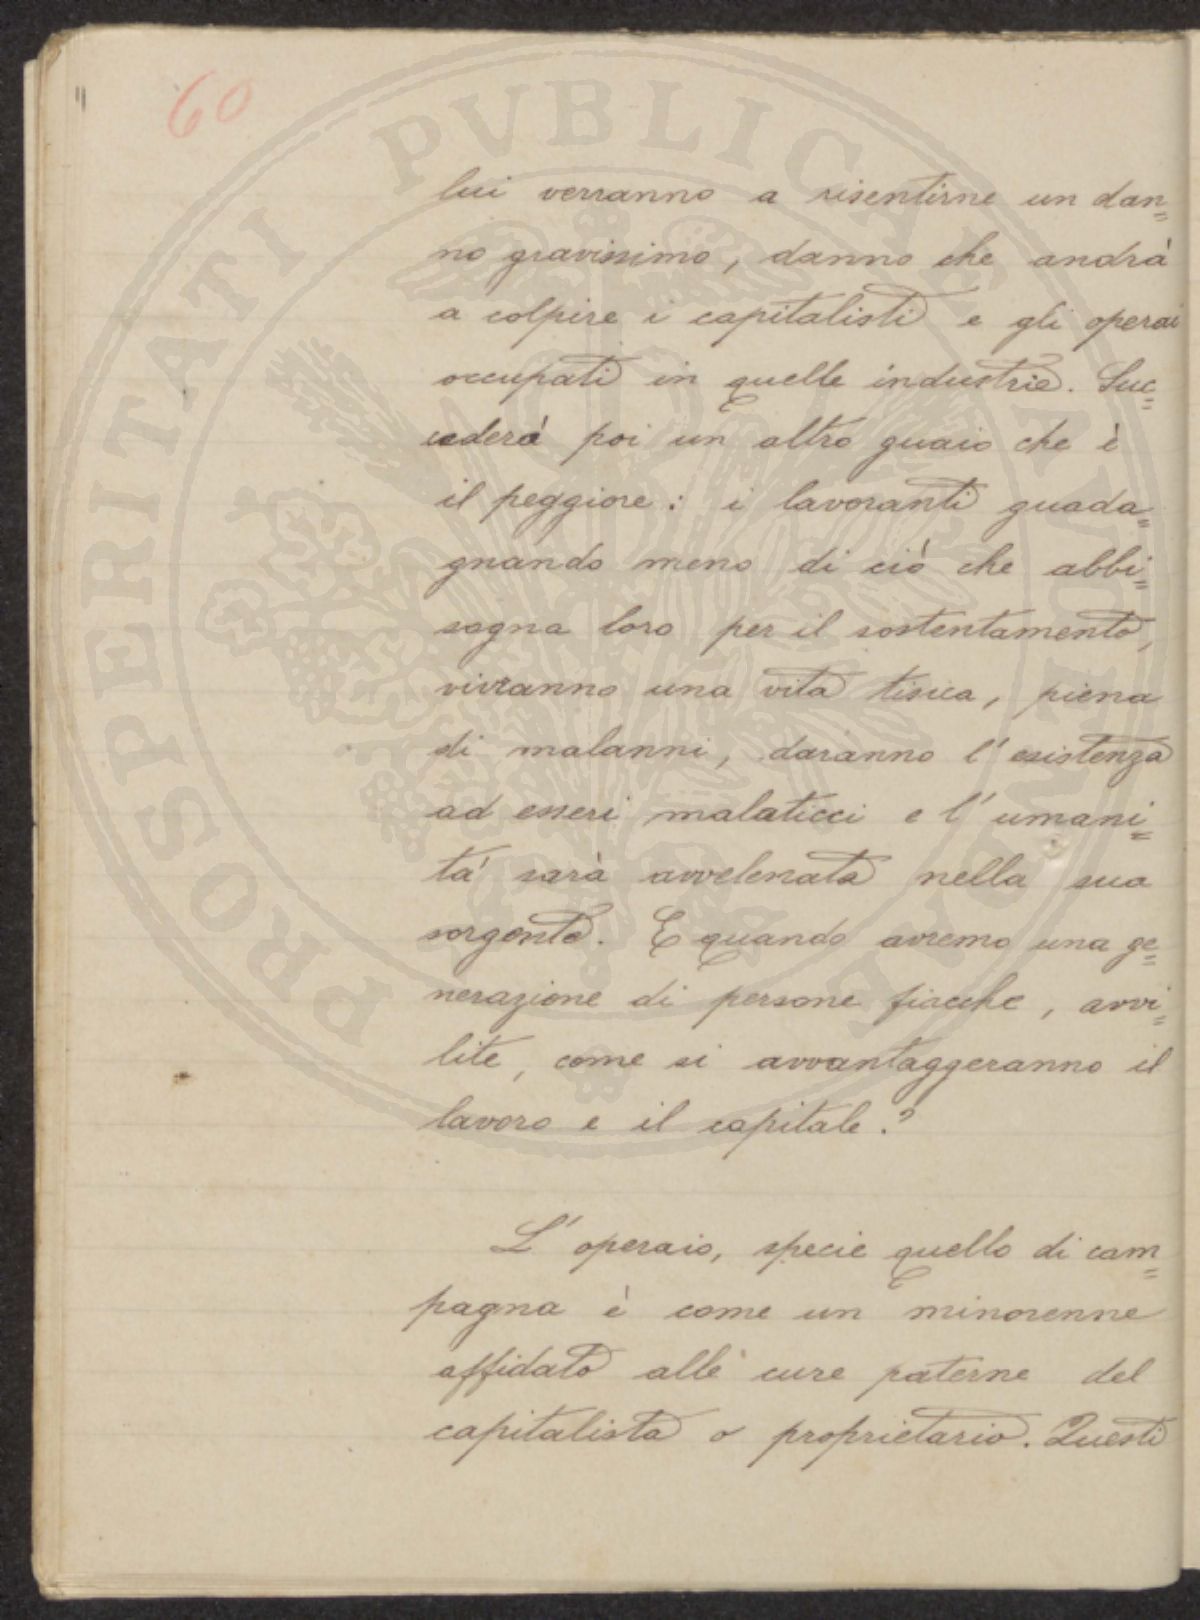 60
PROSPERITATI PVBLICAE AVGENDAE
lui verranno a risentirne un dan=
no gravissimo, danno che andrà
a colpire i capitalisti e gli operai
occupati in quelle industrie. Suc=
cederà poi un altro guaio che è
il peggiore: i lavoranti guada=
gnando meno di ciò che abbi=
sogna loro per il sostentamento,
vivranno una vita tisica, piena
di malanni, daranno l'esistenza
ad esseri malaticci e l'umani=
tà sarà avvelenata nella sua
sorgente. E quando avremo una ge=
nerazione di persone fiacche, avvi=
lite, come si avvantaggeranno il
lavoro e il capitale?
L'operaio, specie quello di cam=
pagna è come un minorenne
affidato alle cure paterne del
capitalista o proprietario. Questi